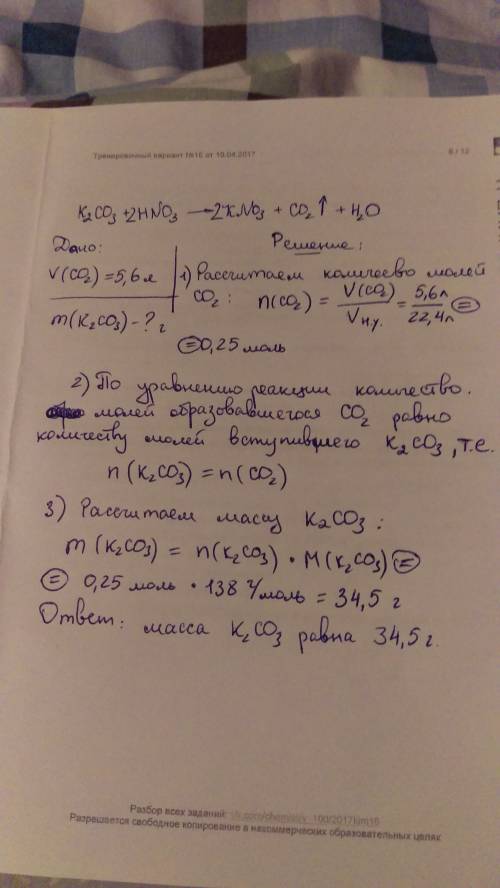 Тренировочный вариант №16 от 10.04.2017
6 / 12
K₂CO₃ + 2HNO₃ → 2KNO₃ + CO₂↑ + H₂O
Дано:
Решение:
V(CO₂) = 5,6 л
1) Рассчитаем количево молей
CO₂: n(CO₂) = V(CO₂)/Vн.у. = 5,6л/22,4л =
m(K₂CO₃) - ? г
= 0,25 моль
2) По уравнению реакции количество.
молей образовавшегося CO₂ равно
количеству молей вступившего K₂CO₃, т.е.
n(K₂CO₃) = n(CO₂)
3) Рассчитаем массу K₂CO₃:
m(K₂CO₃) = n(K₂CO₃) · M(K₂CO₃) =
= 0,25 моль · 138 г/моль = 34,5 г
Ответ: масса K₂CO₃ равна 34,5 г.
Разбор всех заданий:
Разрешается свободное копирование в некоммерческих образовательных целях